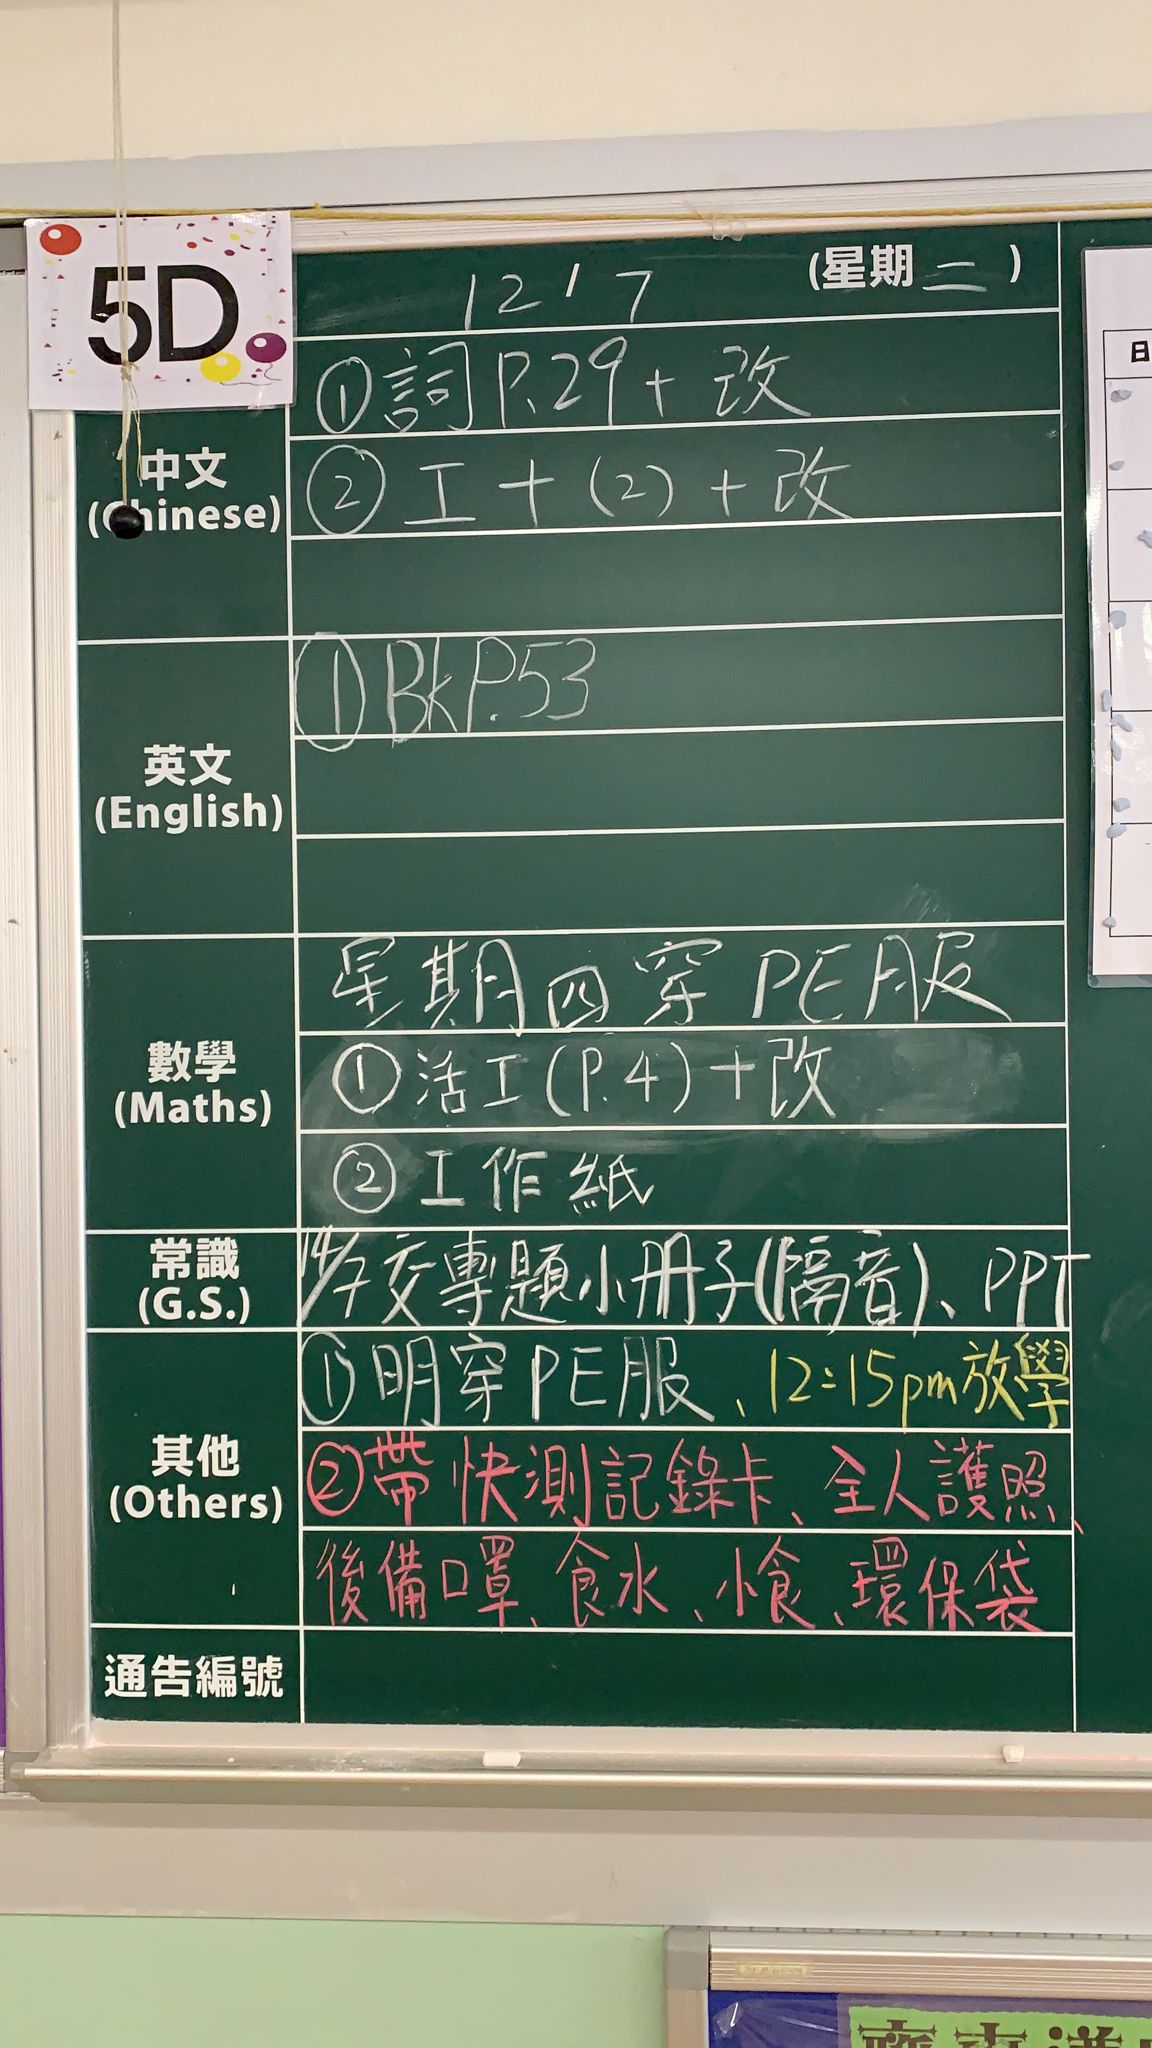 5D
12/7 (星期二)
中文
(Chinese)
①詞P.29+改
②工+(2)+改
英文
(English)
①BkP.53
數學
(Maths)
星期四穿PE服
①活工(P.4)+改
②工作紙
常識
(G.S.)
14/7交專題小册子(隔音)、PPT
其他
(Others)
①明穿PE服、12:15pm放學
②帶快測記錄卡、全人護照、
後備口罩、食水、小食、環保袋
通告編號
日